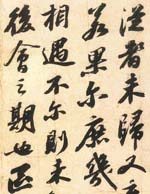 從者未歸又不
若果尔庶幾
相遇不尔則未
後會之期也